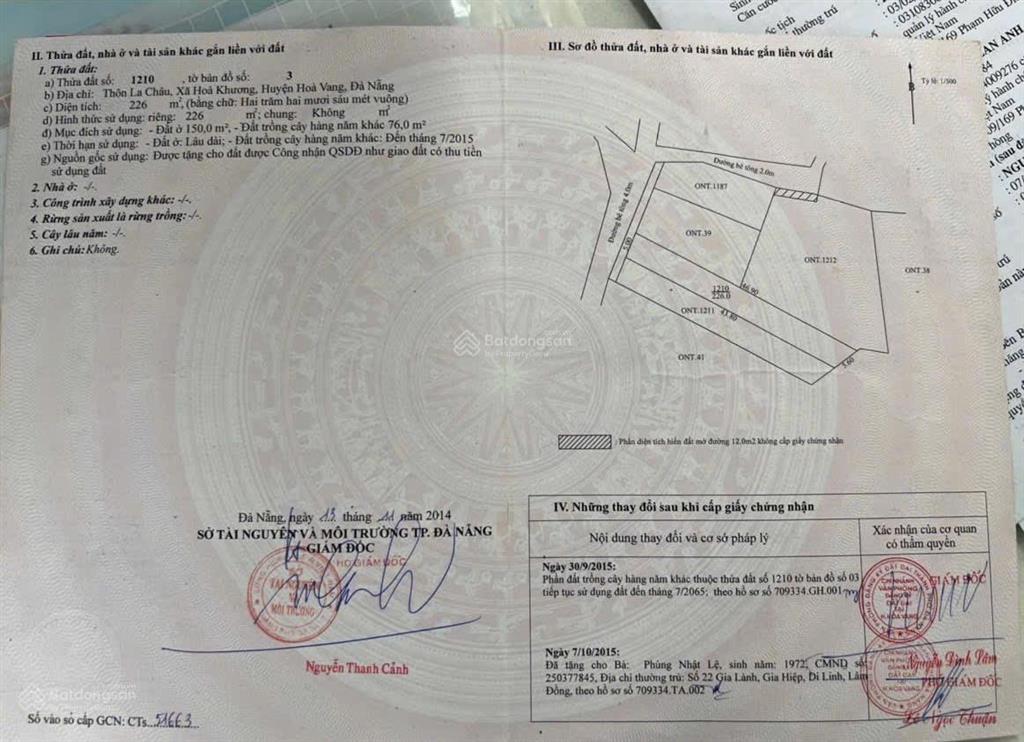 II. Thửa đất, nhà ở và tài sản khác gắn liền với đất
1. Thửa đất:
a) Thửa đất số: 1210 , tờ bản đồ số: 3
b) Địa chỉ: Thôn La Châu, Xã Hoà Khương, Huyện Hoà Vang, Đà Nẵng
c) Diện tích: 226 m², (bằng chữ: Hai trăm hai mươi sáu mét vuông)
d) Hình thức sử dụng: riêng: 226 m²; chung: Không m²
đ) Mục đích sử dụng: - Đất ở 150,0 m², - Đất trồng cây hàng năm khác 76,0 m²
e) Thời hạn sử dụng: - Đất ở: Lâu dài; - Đất trồng cây hàng năm khác: Đến tháng 7/2015
g) Nguồn gốc sử dụng: Được tặng cho đất được Công nhận QSDĐ như giao đất có thu tiền
sử dụng đất
2. Nhà ở: -/-.
3. Công trình xây dựng khác: -/-.
4. Rừng sản xuất là rừng trồng: -/-.
5. Cây lâu năm: -/-.
6. Ghi chú: Không.
Đà Nẵng, ngày 13 tháng 11 năm 2014
SỞ TÀI NGUYÊN VÀ MÔI TRƯỜNG TP. ĐÀ NẴNG
GIÁM ĐỐC
PHÓ GIÁM ĐỐC
Nguyễn Thanh Cảnh
Số vào sổ cấp GCN: CTs 51663
III. Sơ đồ thửa đất, nhà ở và tài sản khác gắn liền với đất
B
Tỷ lệ: 1/500
Đường bê tông 2.0m
Đường bê tông 4.0m
ONT.1187
ONT.39
ONT.1212
ONT.38
5.00
1210
226.0
46.90
ONT.1211
43.80
5.60
ONT.41
: Phần diện tích hiến đất mở đường 12.0m2 không cấp giấy chứng nhận
IV. Những thay đổi sau khi cấp giấy chứng nhận
Nội dung thay đổi và cơ sở pháp lý
Xác nhận của cơ quan
có thẩm quyền
Ngày 30/9/2015:
Phần đất trồng cây hàng năm khác thuộc thửa đất số 1210 tờ bản đồ số 03
tiếp tục sử dụng đất đến tháng 7/2065; theo hồ sơ số 709334.GH.001
GIÁM ĐỐC
Nguyễn Đình Lâm
Ngày 7/10/2015:
Đã tặng cho Bà: Phùng Nhật Lệ, sinh năm: 1972, CMND số:
250377845, Địa chỉ thường trú: Số 22 Gia Lành, Gia Hiệp, Di Linh, Lâm
Đồng, theo hồ sơ số 709334.TA.002
PHÓ GIÁM ĐỐC
Lê Ngọc Thuận
Batdongsan
by PropertyGuru
Batdongsan